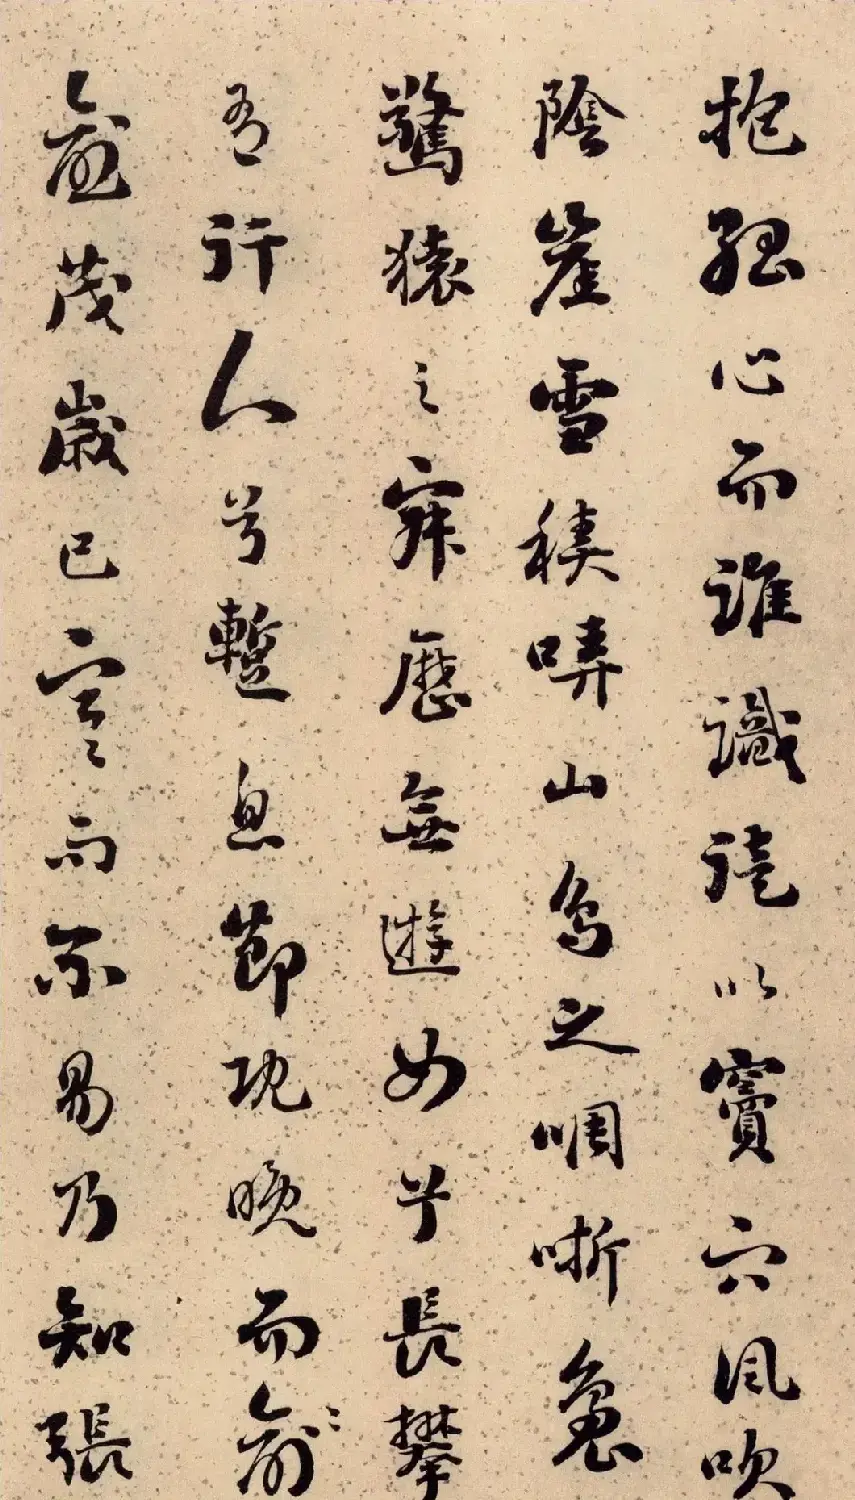 抱心而誰識徒以竇穴風吹
陰崖雪積哢山鳥之啁哳裊
驚猿之寂歷無遊女兮長攀
有行人兮暫息節既晚而愈
愈茂歲已寒而不易乃知張